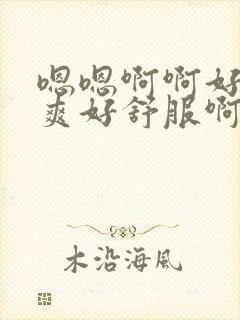 嗯嗯啊啊好
爽好舒服啊
木沿海风